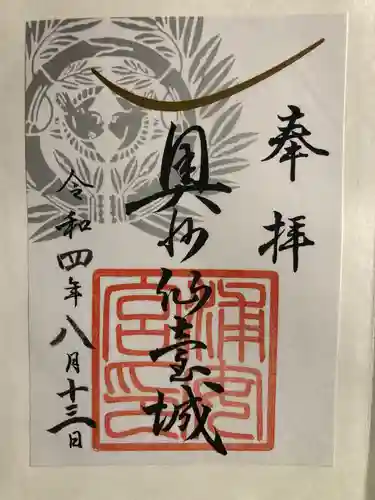 奉拝
奥州仙臺城
令和四年八月十三日